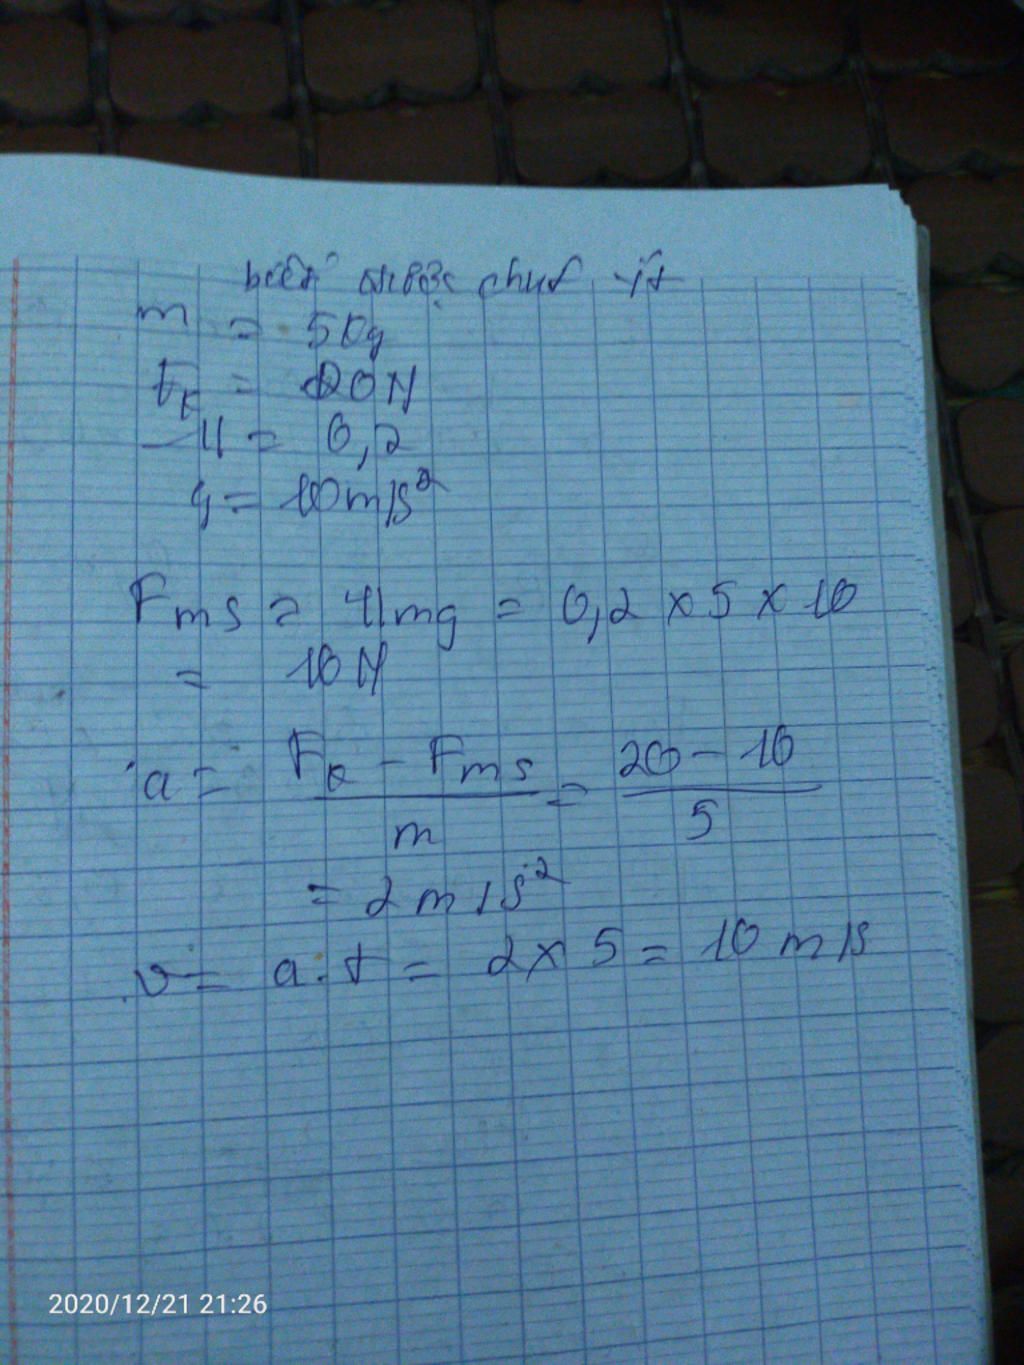 biết được chút ít
m = 5kg
Fk = 20N
µ = 0,2
g = 10m/s²
Fms = µmg = 0,2 x 5 x 10
= 10N
a = Fk - Fms / m = 20 - 10 / 5
= 2 m/s²
v = a.t = 2 x 5 = 10 m/s
2020/12/21 21:26